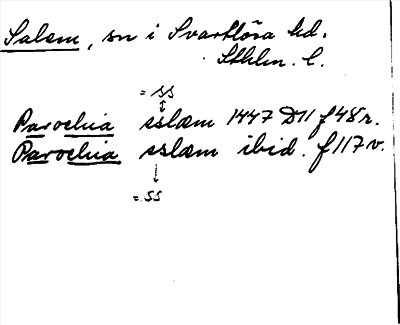 Salem, sn i Svartlösa hd.
Sthlm. l.
= ss
Parochia sslæm 1447 D11 f 48 r.
Parochia sslæm ibid. f 117 v.
= ss